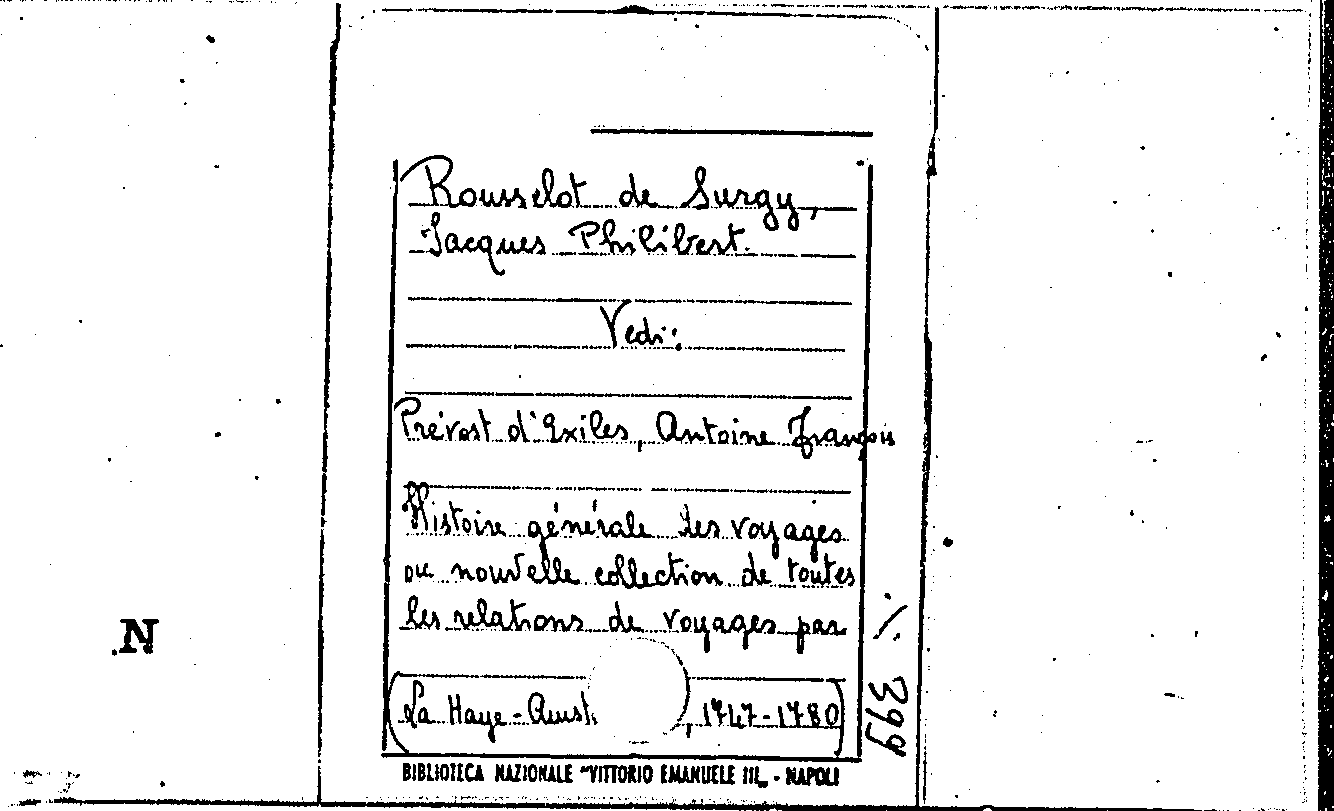 Rousselot de Surgy,
Jacques Philibert.
Vedi:
Prévost d'Exiles, Antoine François
Histoire générale des voyages
ou nouvelle collection de toutes
les relations de voyages par
(La Haye-Amst , 1747-1780)
./. 399
BIBLIOTECA NAZIONALE "VITTORIO EMANUELE III„ - NAPOLI
N